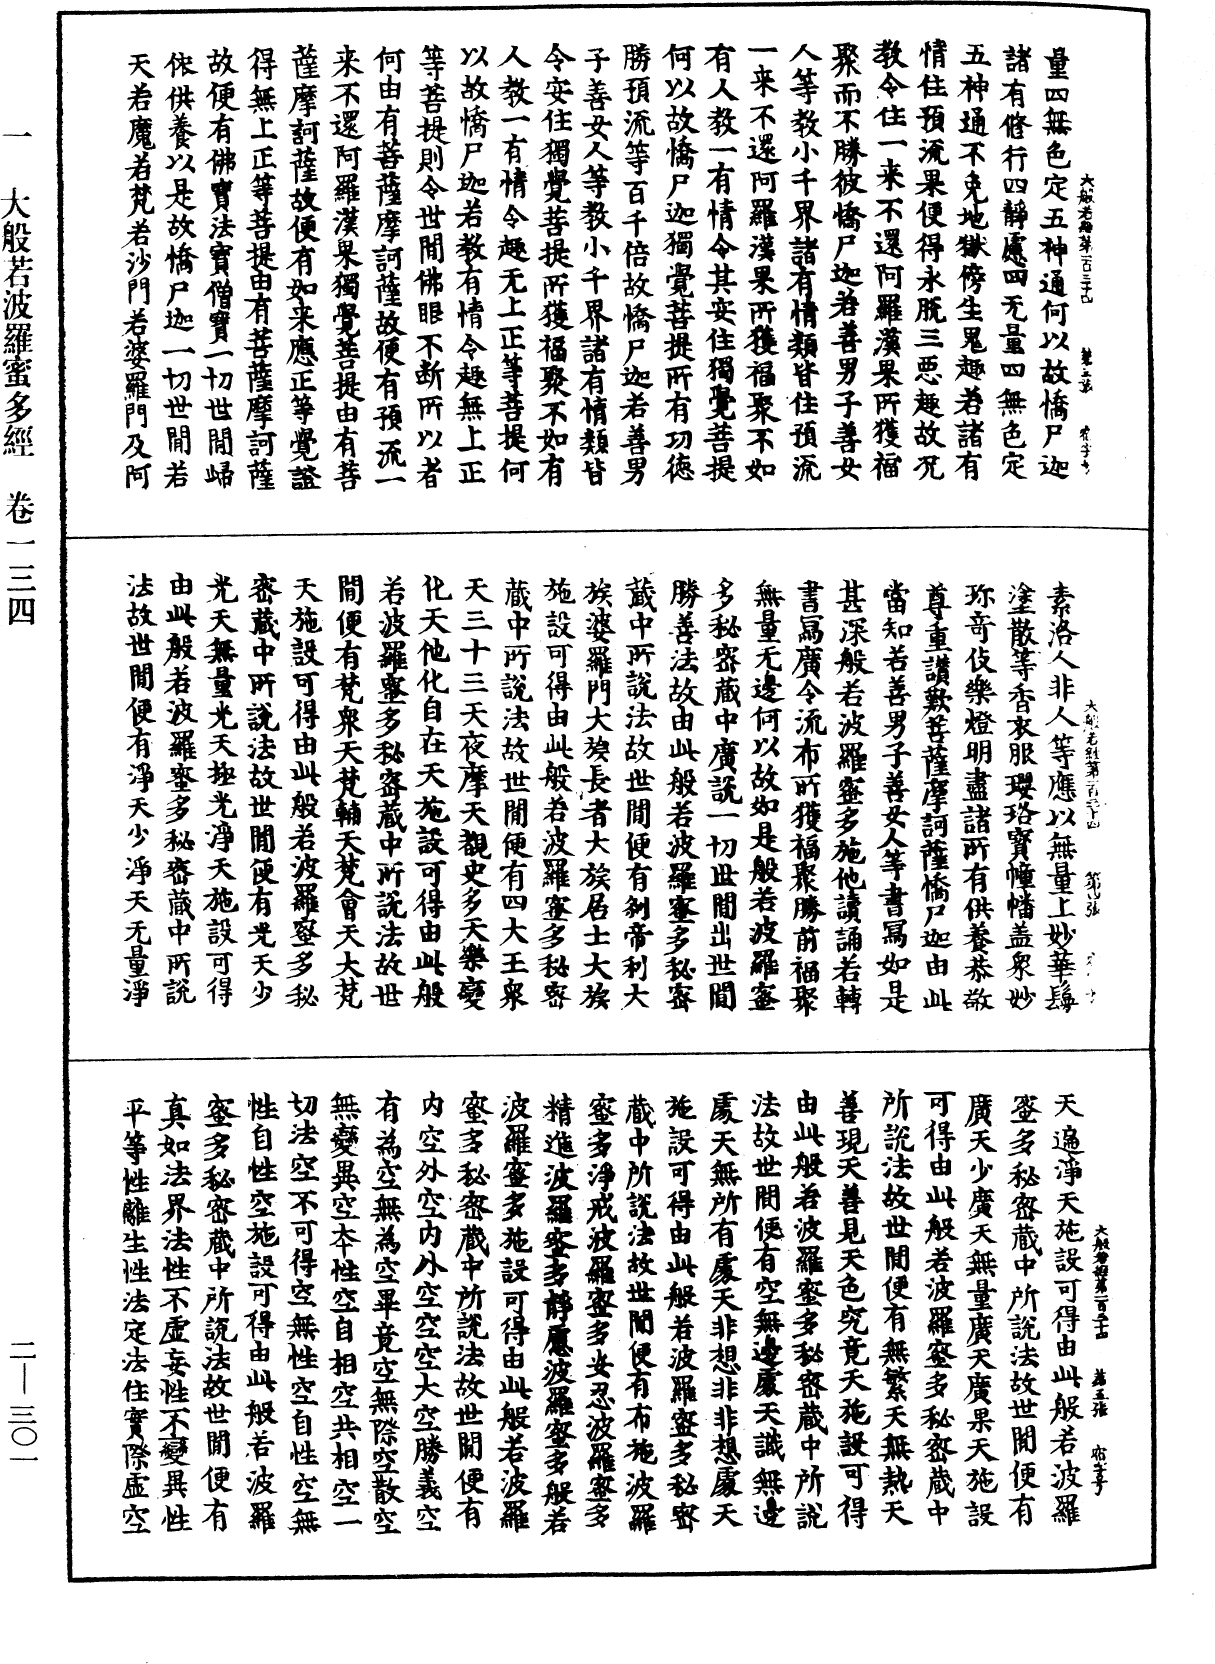 量四無色定五神通何以故憍尸迦
諸有修行四靜慮四无量四無色定
五神通不免地獄傍生鬼趣若諸有
情住預流果便得永脫三惡趣故況
教令住一来不還阿羅漢果所獲福
聚而不勝彼憍尸迦若善男子善女
人等教小千界諸有情類皆住預流
一来不還阿羅漢果所獲福聚不如
有人教一有情令其安住獨覺菩提
何以故憍尸迦獨覺菩提所有功德
勝預流等百千倍故憍尸迦若善男
子善女人等教小千界諸有情類皆
令安住獨覺菩提所獲福聚不如有
人教一有情令趣无上正等菩提何
以故憍尸迦若教有情令趣無上正
等菩提則令世間佛眼不断所以者
何由有菩薩摩訶薩故便有預流一
来不還阿羅漢果獨覺菩提由有菩
薩摩訶薩故便有如来應正等覺證
得無上正等菩提由有菩薩摩訶薩
故便有佛寶法寶僧寶一切世間歸
依供養以是故憍尸迦一切世間若
天若魔若梵若沙門若婆羅門及阿
素洛人非人等應以無量上妙華鬘
塗散等香衣服瓔珞寶幢幡盖衆妙
珎竒伎樂燈明盡諸所有供養恭敬
尊重讚歎菩薩摩訶薩憍尸迦由此
當知若善男子善女人等書寫如是
甚深般若波羅蜜多施他讀誦若轉
書寫廣令流布所獲福聚勝前福聚
無量无邊何以故如是般若波羅蜜
多秘密蔵中廣說一切世間出世間
勝善法故由此般若波羅蜜多秘密
蔵中所說法故世間便有刹帝利大
族婆羅門大族長者大族居士大族
施設可得由此般若波羅蜜多秘密
蔵中所說法故世間便有四大王衆
天三十三天夜摩天覩史多天樂變
化天他化自在天施設可得由此般
若波羅蜜多秘密蔵中所說法故世
間便有梵衆天梵輔天梵會天大梵
天施設可得由此般若波羅蜜多秘
密蔵中所說法故世間便有光天少
光天無量光天極光淨天施設可得
由此般若波羅蜜多秘密蔵中所說
法故世間便有淨天少淨天无量淨
天遍淨天施設可得由此般若波羅
蜜多秘密蔵中所說法故世間便有
廣天少廣天無量廣天廣果天施設
可得由此般若波羅蜜多秘密蔵中
所說法故世間便有無繁天無熱天
善現天善見天色究竟天施設可得
由此般若波羅蜜多秘密蔵中所說
法故世間便有空無邊處天識無邊
處天無所有處天非想非非想處天
施設可得由此般若波羅蜜多秘密
蔵中所說法故世間便有布施波羅
蜜多淨戒波羅蜜多安忍波羅蜜多
精進波羅蜜多靜慮波羅蜜多般若
波羅蜜多施設可得由此般若波羅
蜜多秘密蔵中所說法故世間便有
內空外空內外空空空大空勝義空
有為空無為空畢竟空無際空散空
無變異空本性空自相空共相空一
切法空不可得空無性空自性空無
性自性空施設可得由此般若波羅
蜜多秘密蔵中所說法故世間便有
真如法界法性不虛妄性不變異性
平等性離生性法定法住實際虛空
大般若波羅蜜多經 卷一三四
二—三〇一